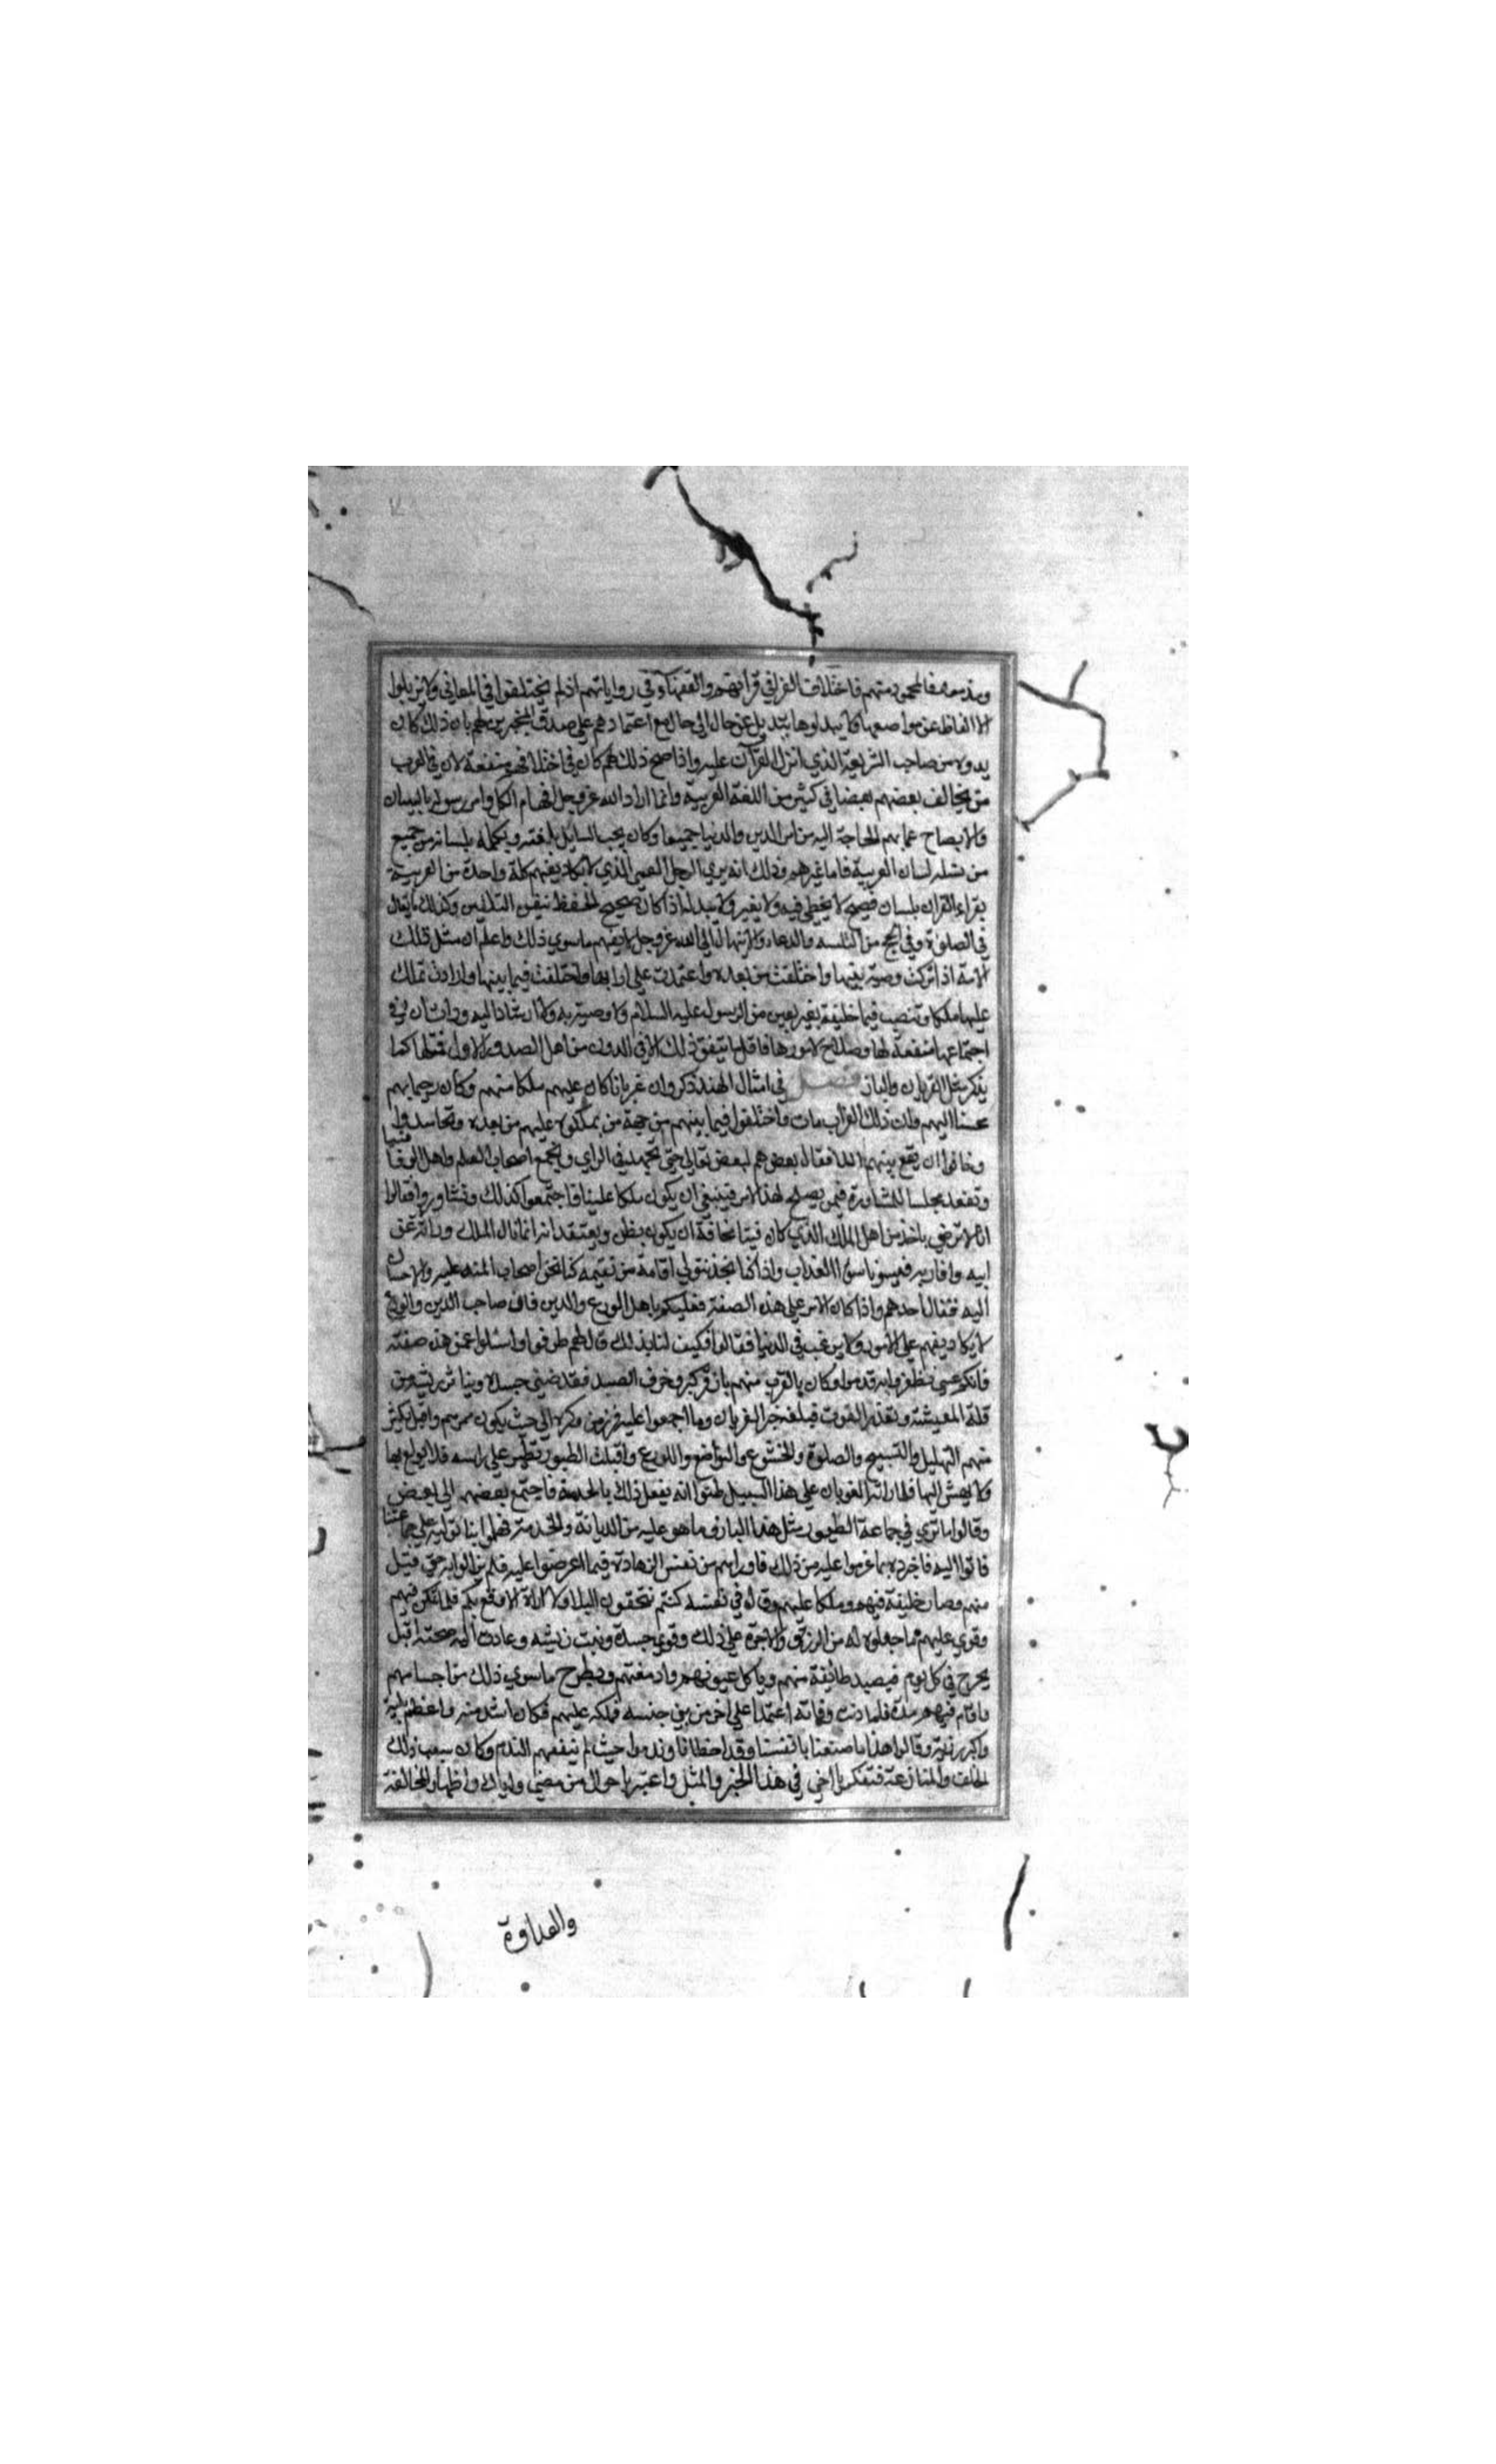 ومذمومة فالمحمود منهم فاختلاف القرا في قرأتهم والفقهاء في رواياتهم اذ لم يختلفوا في المعاني ولا يزيلوا
الالفاظ عن مواضعها ولا يبدلوها بتبديل عن حال الى حال مع اعتمادهم على صدق المخبرين لهم بان ذلك كان
يدونه من صاحب الشريعة الذي انزل القرآن عليه واذا صح ذلك لهم كان في اختلافهم منفعة لان في العرب
من يخالف بعضهم بعضا في كثير من اللغة العربية وانما اراد الله عز وجل افهام الكل وامر رسوله بالبيان
والايضاح عما بهم الحاجة اليه من امر الدين والدنيا جميعا وكان يجب السايل بلغته ويكلمه بلسانه من جميع
من شمله لسان العربية فاما غيرهم وذلك انه يري الرجل العجمى الذي لا يكاد يفهم كلة واحدة من العربية
يقراء القران بلسان فصيح لا يخطي فيه ولا يغير ولا يبدله اذا كان صحيح الحفظ متيقن التلقين وكذلك يقال
في الصلوة وفي الحج من التلبيه والدعاء والابتهال الي الله عز وجل لا يفهم ماسوي ذلك واعلم ان مثل تلك
الامة اذا تركت وصية نبيها واختلفت من بعده واعتمدت علي ارايها واختلفت فيما بينها وارادت تملك
عليها ملكا وتنصب فيها خليفة بغير يعين من الرسول عليه السلام ولا وصية به ولا ارشاد اليه ورات ان في
اجتماعها منفعة لها وصلاح لامورها فاقل ما يتفق ذلك الا في الدون من اهل الصدور الاول فمثلها كما
يذكر مثل الغربان والباز فصل في امثال الهند ذكروا ان غربانا كان عليهم ملكا منهم وكان رحيما بهم
محسنا اليهم وان ذلك الغراب مات واختلفوا فيما بينهم من جهة من يملكونه عليهم من بعده وتحاسدوا
وخافوا ان يقع بينهم العداوة فقال بعضهم لبعض تعالى حتى نجتهد في الراي ونجمع اصحاب العلم واهل الوفا
ونقعد مجلسا للمشاورة فيمن يصلح لهذا الامر فينبغي ان يكون ملكا علينا فاجتمعوا كذلك وتشاوروا فقالوا
انا لا نرضي باخذ من اهل الملك الذي كان فينا مخافة ان يكون يظن ويعتقد انه انما نال الملك وراثة عن
ابيه واقاربه فيسونا سوء العذاب واذا كنا نحن نتولي اقامة من نقيمه كنا نحن اصحاب المنة عليه والاحسان
اليه فقال احدهم واذا كان الامر على هذه الصفة فعليكم باهل الورع والدين فان صاحب الدين والورع
لا يكاد يقدم علي الامور ولا يرغب في الدنيا فقالوا فكيف لنا بذلك قال لهم طوفوا واسئلوا عمن هذه صفته
فانكم عسى تظفروا به قدموه وكان بالقرب منهم باز قد كبر وخرف الصيد فقد ضني جسده وتناثر ريشه من
قلة المعيشة وتعذر القوت فبلغه خبر الغربان وما اجمعوا عليه فبرز من وكره الي حيث يكون ممرهم واقبل يكثر
منهم التهليل والتسبيح والصلوة والخشوع والتواضع والورع واقبلت الطيور تظهر علي راسه فلا يولع بها
ولا يهش اليها فلما راته الغربان علي هذا السبيل ظنوا انه يفعل ذلك بالحقيقة فاجتمع بعضهم الي بعض
وقالوا ما نري في جماعة الطيور مثل هذا الباز وما هو عليه من الديانة والخدمة فهلموا بنا نوليه علي جماعتنا
فاتوا اليه فاخبروه بما عزموا عليه من ذلك فاوراهم من نفس الزهادة فيما اعرضوا عليه فلم يزالوا به حتى قبل
منهم وصار خليفة فيهم وملكا عليهم وقال في نفسه كنتم تتحققون البلاء ولا اراه الا وقع بكم فلما تمكن فيهم
وقوي عليهم بما جعلوه له من الرزق والاجرة على ذلك وقوي جسده ونبت ريشه وعادت اليه صحته اقبل
يخرج في كل يوم فيصيد طائفة منهم وياكل عيونهم وادمغتهم ويطرح ماسوي ذلك من اجسامهم
واقام فيهم مدة فلما دنت وفاته اعتمدا على اخر من بني جنسه فملكه عليهم فكان اشد منه واعظم بلية
واكبر رزية وقالوا هذا ما صنعنا بانفسنا وقد اخطانا وندموا حيث لم ينفعهم الندم وكان سبب ذلك
الخلف والمنازعة فتفكر يا اخي في هذا الخبر والمثل واعتبر باحوال من مضى واياك واظهار المخالفة
والعداوة